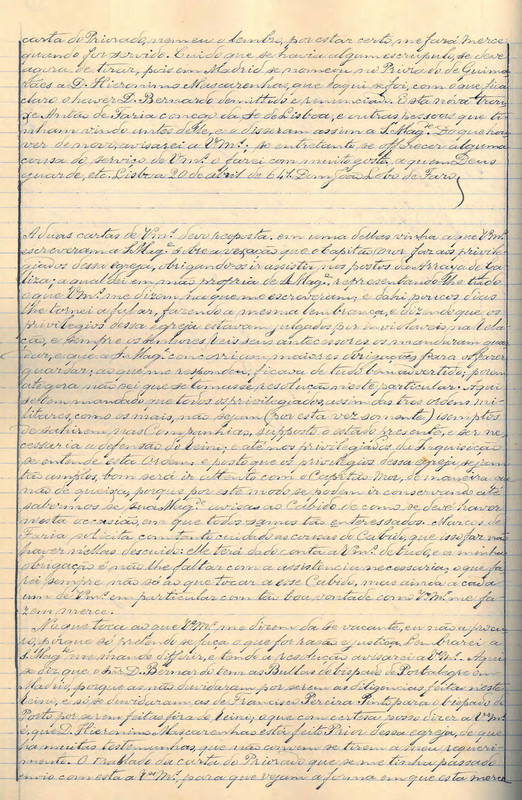 carta do Priorado, nomeu o lembro, por estar certo, me fará merce
quando for servido. Cuido que se havia algum escrupulo, se deve
agora de tirar, pois em Madrid se nomeou no Priorado de Guima
rães a D. Hieronimo Mascarenhas, que daqui foi, com o que fica
claro o haver D. Bernardo demittudo e renunciado. Esta nova trou
xe Antão de Faria conego da Sé de Lisboa, e outras pessoas que ti
nham vindo antes dele, e o disseram assim a S. Mag.e Do que hou
ver de novo, avisarei a V.m.ce; se entretanto se offerecer alguma
cousa do serviço de V.m.ce o farei com muito gosto, a quem Deus
guarde, etc. Lisboa 20 de abril de 641. Dom João Lobo de Faro.
A duas cartas de V.m.ce devo resposta. em uma dellas vinha a que V.m.ce
escreveram a S. Mag.e sobre a vexação que o Capitão Mor faz aos privile
giados dessa Egreja, obrigando-os ir assistir nos postos da Arraya de Ga
liza; a qual dei em mão propria de S. Mag.e, representando-lhe tudo
o que V.m.ce me dizem na que me escreveram; e dahi poucos dias
lhe tornei a falar, fazendo a mesma lembrança, e dizendo que os
privilegios dessa egreja estavam julgados por inviolaveis na Rela
ção, e sempre os senhores Reis seus antecessores os mandaram guar
dar, e que a S. Mag.e concorriam maiores obrigações, para os fazer
guardar; ao que me respondeu, ficava de tudo bem advertido; porem
ategora não sei que se tomasse resolução neste particular. Aqui
se tem mandado que todos os privilegiados, assim das tres ordens mi
litares, como os mais, não sejam (por esta vez somente) isemptos
de sahirem nas Companhias, supposto o estado presente, e ser ne
cessaria a defensão do Reino; e até nos privilegiados da Inquisição
se entende esta ordem; e posto que os privilegios dessa egreja, sejam
tão amplos, bom será ir attento com o Capitão Mor, de maneira que
não de queixa, porque por este modo se podem ir conservando até
sabermos se sua Mag.e avisas ao Cabido de como se deve haver
nesta occasião, em que todos somos tão enteressados. Marcos de
Faria, solicita com tanto cuidado as cousas do Cabido, que isso faz não
haver nellas descuido. Elle terá dado conta a V.m.ce de tudo, e a minha
obrigação é não lhe faltar com a assistencia necessaria; o que fa
rei sempre não só ao que tocar a esse Cabido, mas ainda a cada
um de V.m.ce em particular com tão boa vontade como V.m.ce me fa
zem merce.
No que toca ao que V.m.ce me dizem da se vacante, eu não a procu
ro, porque só pretendo se faça o que for razão e justiça. Lembrarei a
S. Mag.e me mande differir, e tendo a resolução avisarei a V.m.ce. Aqui
se diz que o Snr. D. Bernardo tem as Bullas do bispado de Portalegre em
Madrid, porque as não duvidaram por serem as diligencias feitas neste
Reino, e só se duvidaram as de Francisco Pereira Pinto para o bispado do
Porto por serem feitas fora do Reino; o que com certesa posso dizer a V.m.ce
é, que D. Hieronimo Mascarenhas está feito Prior dessa egreja, de que
ha muitas testemunhas, que não convem se tirem a meu requeri
mento. O traslado da carta do Priorado que se me tinha passado
envio com esta a V.as M.ces para que vejam a forma em que esta merce